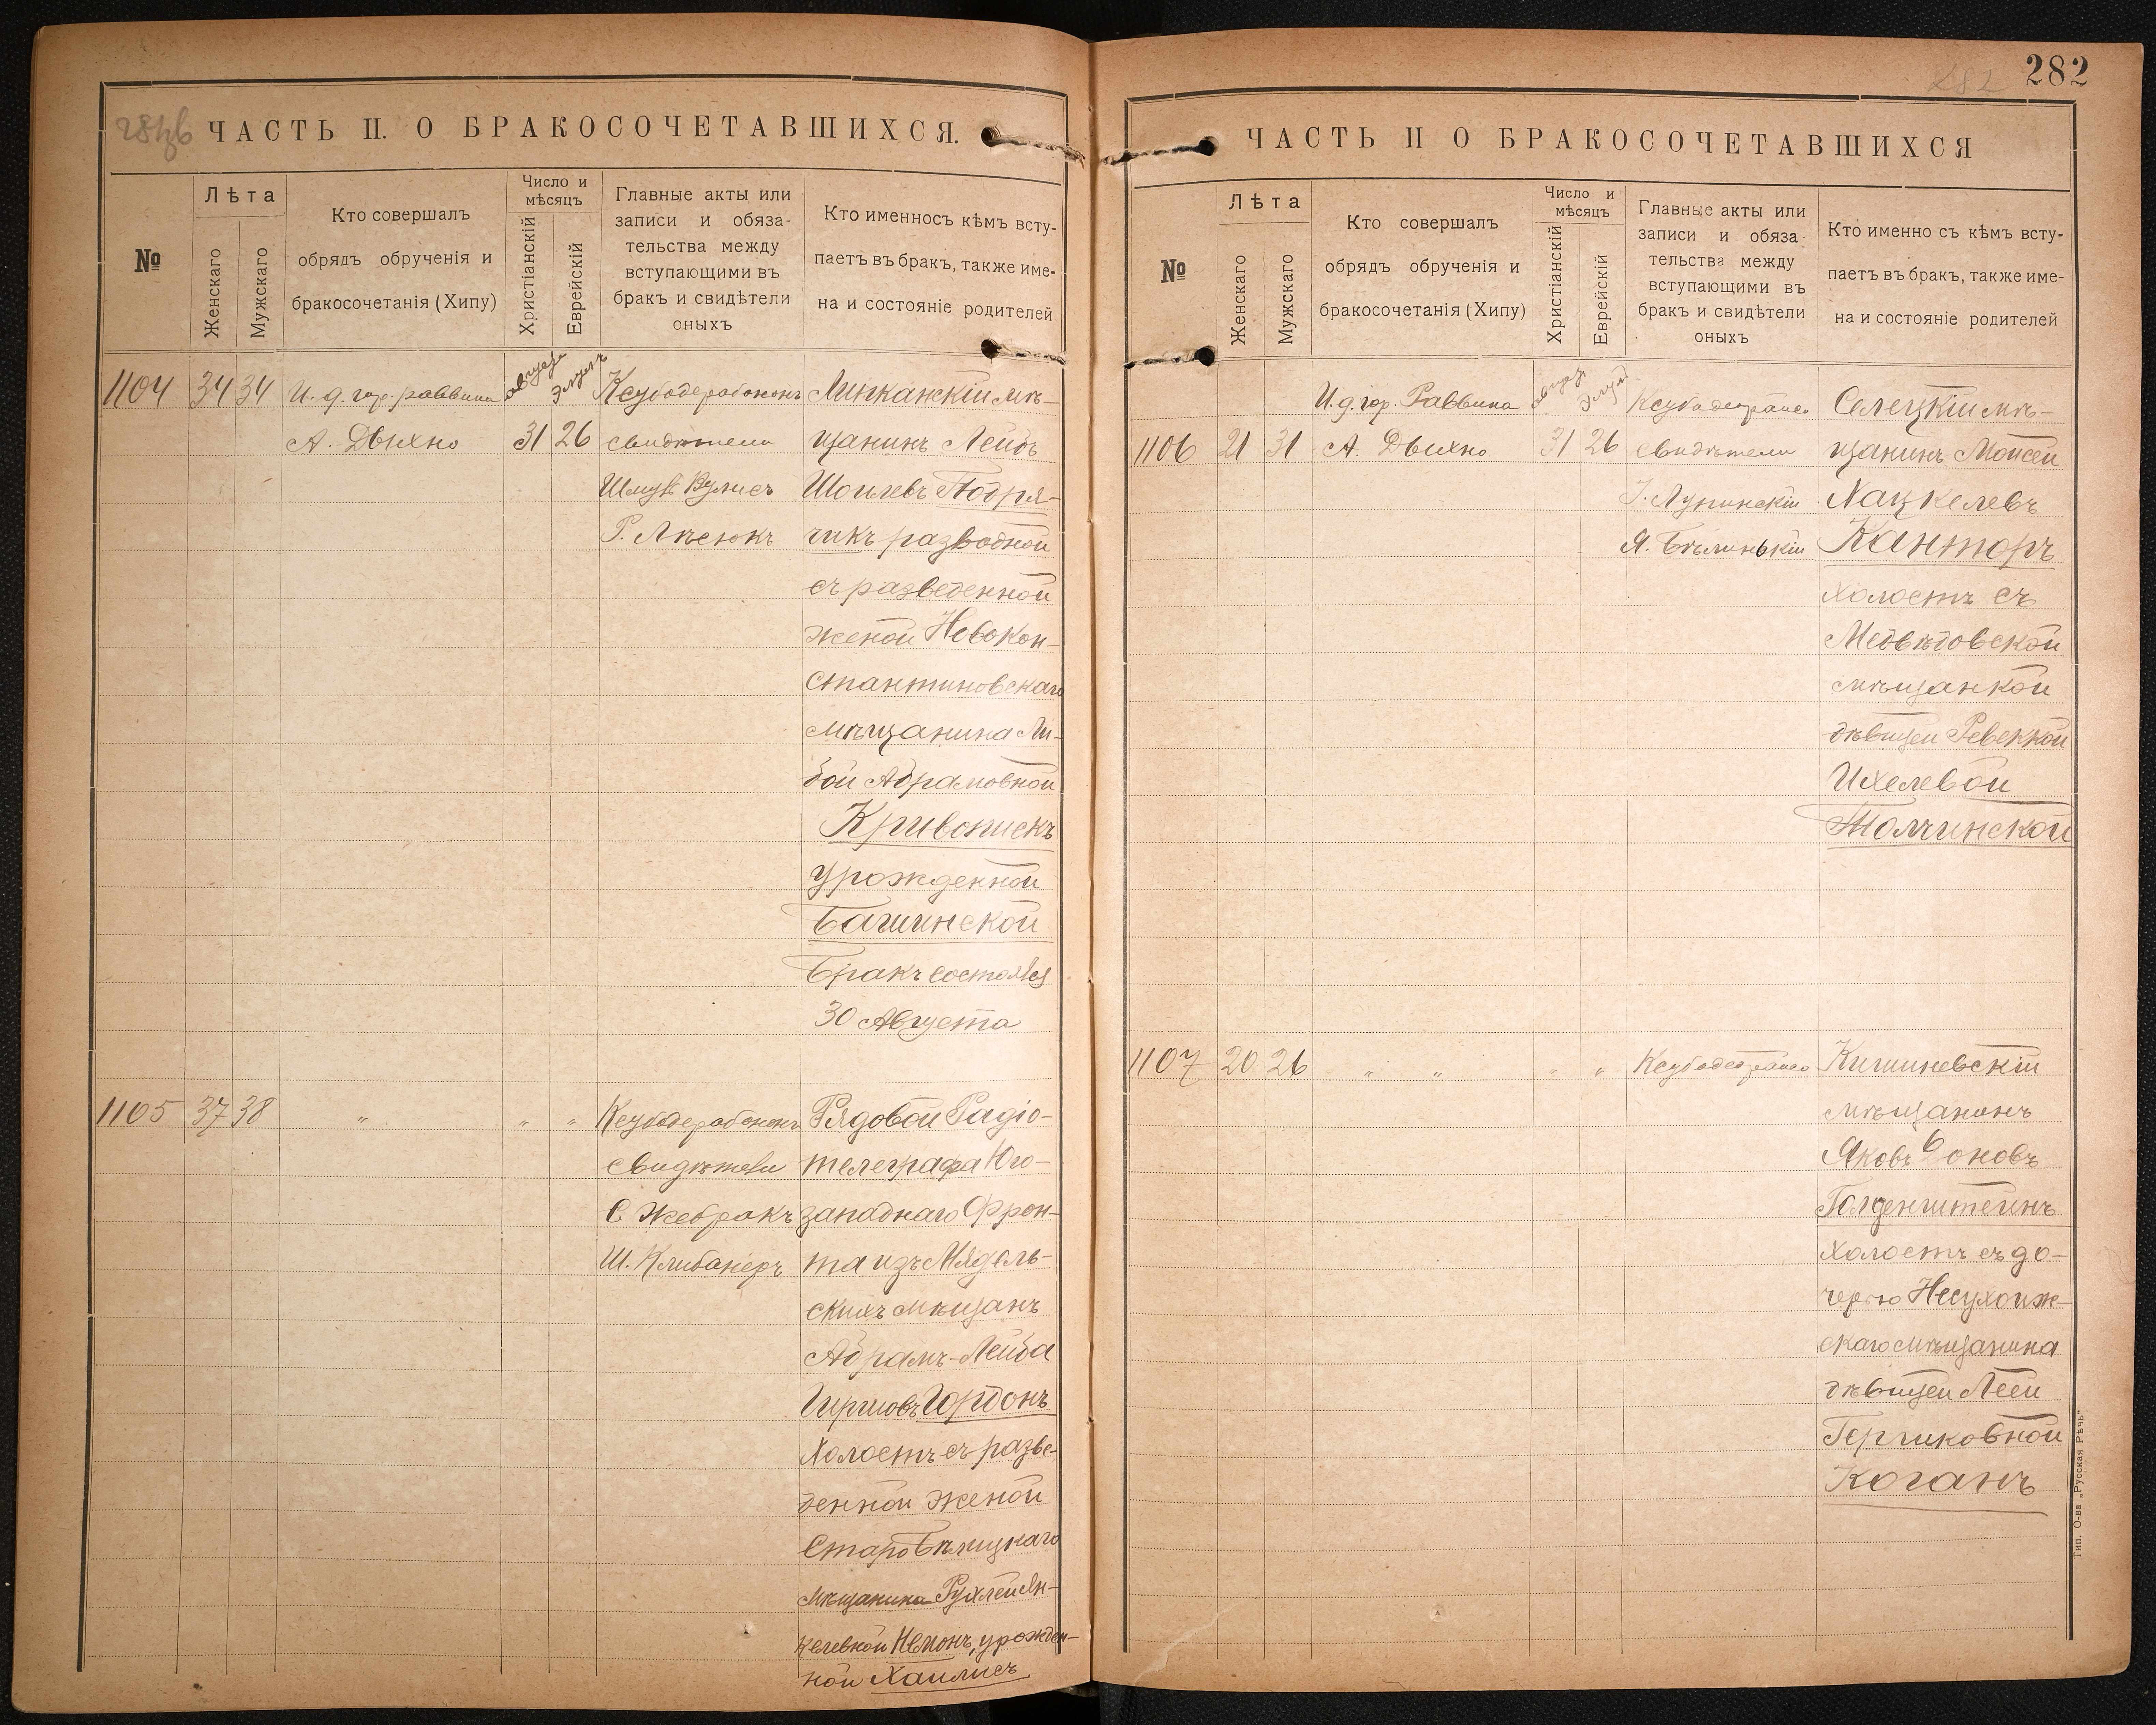 ЧАСТЬ II. О БРАКОСОЧЕТАВШИХСЯ.
№
Лѣта
Женскаго
Мужскаго
Кто совершалъ
обрядъ обрученія и
бракосочетанія (Хипу)
Число и
мѣсяцъ
Христіанскій
Еврейскій
Главные акты или
записи и обяза-
тельства между
вступающими въ
бракъ и свидѣтели
оныхъ
Кто именносъ кѣмъ всту-
паетъ въ бракъ, также име-
на и состояніе родителей
1104 34 34
И. д. гор. раввина
А. Дыхно
31 26
свидѣтели
Шмуль Вулисъ
Р. Лѣсюкъ
мѣ-
щанинъ Лейбъ
Шоилевъ Подря-
чикъ разводной
съ разведенной
женой Невокон-
стантиновскаго
мѣщанина Ли-
бой Абрамовной
Кривонискъ
урожденной
Багинской
Бракъ состоялся
30 Августа
1105 37 38 „ „ „
свидѣтели
С Жебракъ
Ш. Клибанеръ
Рядовой Радіо-
телеграфа Юго-
западнаго Фрон-
та изъ Мядель-
скихъ мѣщанъ
Абрамъ-Лейба
Гиршовъ Гордонъ
Холостъ съ разве-
денной женой
Старобѣлицкаго
мѣщанина Рухлей Ян-
келевной Немонъ, урожден-
ной Хаилисъ
282
282
ЧАСТЬ II О БРАКОСОЧЕТАВШИХСЯ
№
Лѣта
Женскаго
Мужскаго
Кто совершалъ
обрядъ обрученія и
бракосочетанія (Хипу)
Число и
мѣсяцъ
Христіанскій
Еврейскій
Главные акты или
записи и обяза-
тельства между
вступающими въ
бракъ и свидѣтели
оныхъ
Кто именно съ кѣмъ всту-
паетъ въ бракъ, также име-
на и состояніе родителей
И. д. гор. Раввина
1106 21 31 А. Дыхно
31 26
свидѣтели
І. Лунинскій
Я. Бѣлинькій
Селецкій мѣ-
щанинъ Мойсей
Хацкелевъ
Канторъ
Холостъ съ
Медвѣдовской
мѣщанкой
дѣвицей Ревеккой
Ихелевой
Толчинской
1107 20 26 „ „ „ „
Кишиневскій
мѣщанинъ
Яковъ оновъ
Голденштейнъ
Холостъ съ до-
черью Несухоиж-
скаго мѣщанина
дѣвицей Леей
Гершковной
Коганъ
Тип. О-ва „Русская Рѣчь“